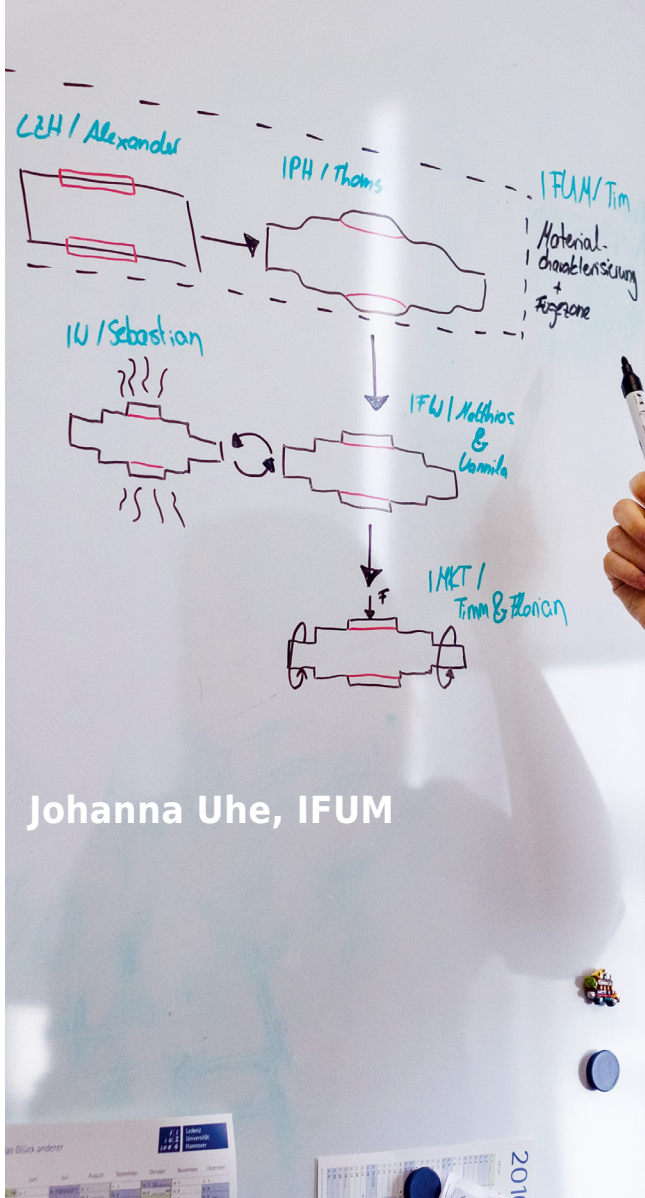 LZH / Alexander
IPH / Thoms
IFUM / Tim
Material-
charakterisierung
+
Fügezone
IW / Sebastian
IFW / Matthias
&
Vannila
F
IMKT /
Timm & Florian
Johanna Uhe, IFUM
as Glück anderer
Leibniz
Universität
Hannover
Juni Juli August September Oktober November Dezember